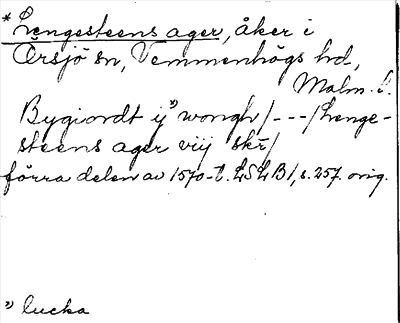 * Lengesteens ager, åker i
Örsjö sn, Vemmenhögs hd,
Malm. l.
Bygiordt ij ⁾⁾ wongh /---/ Lenge-
steens ager viij skr̄/
förra delen av 1570-t. LSLB1, s. 257. orig.
⁾⁾ lucka